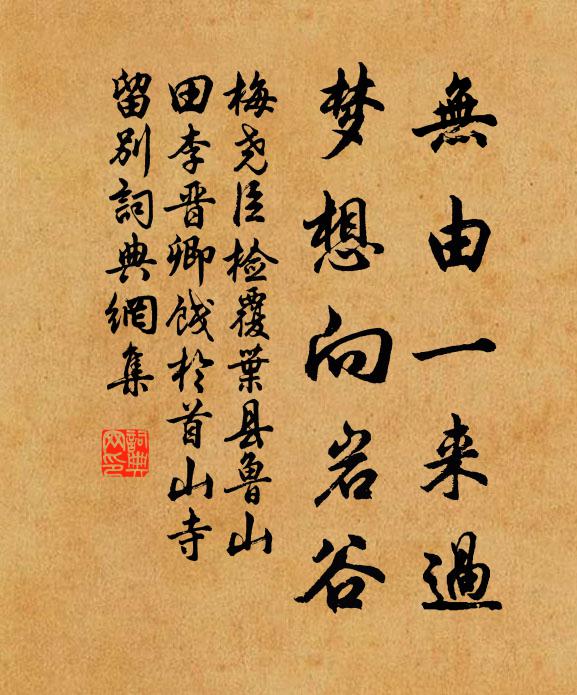 無由一来過
梦想向岩谷
梅尧臣检覆葉县鲁山
田李晋卿饯於首山寺
留别詞典網集
詞典網印